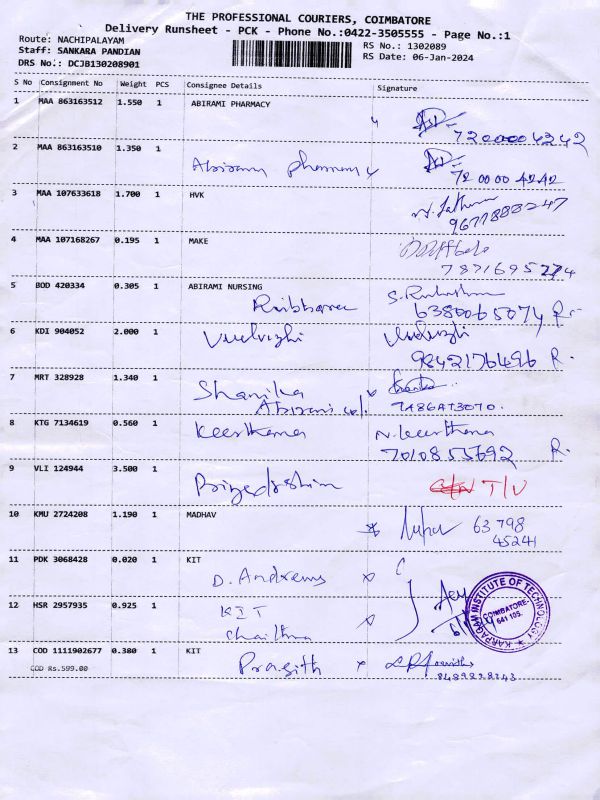 THE PROFESSIONAL COURIERS, COIMBATORE
Delivery Runsheet - PCK - Phone No.:0422-3505555 - Page No.:1
Route: NACHIPALAYAM
RS No.: 1302089
Staff: SANKARA PANDIAN
RS Date: 06-Jan-2024
DRS No.: DCJB130208901
S No Consignment No Weight PCS Consignee Details Signature
1 MAA 863163512 1.550 1 ABIRAMI PHARMACY
7200004242
2 MAA 863163510 1.350 1
Abirami pharmacy
7200004242
3 MAA 107633618 1.700 1 HVK
9677888247
4 MAA 107168267 0.195 1 MAKE
7871695274
5 BOD 420334 0.305 1 ABIRAMI NURSING
6380065074 R
6 KDI 904052 2.000 1
9842176496 R.
7 MRT 328928 1.340 1
Shanika
Abirami
8 KTG 7134619 0.560 1 Keerthana N. Keerthana
7010855692 R.
9 VLI 124944 3.500 1 Priyedarshini
T/V
10 KMU 2724208 1.190 1 MADHAV
63798
45241
11 PDK 3068428 0.020 1 KIT
D. Andrews
12 HSR 2957935 0.925 1 KIT
Chaithra
KARPAGAM INSTITUTE OF TECHNOLOGY
COIMBATORE-
641 105.
13 COD 1111902677 0.380 1 KIT
COD Rs.599.00
Prasith
8489828243